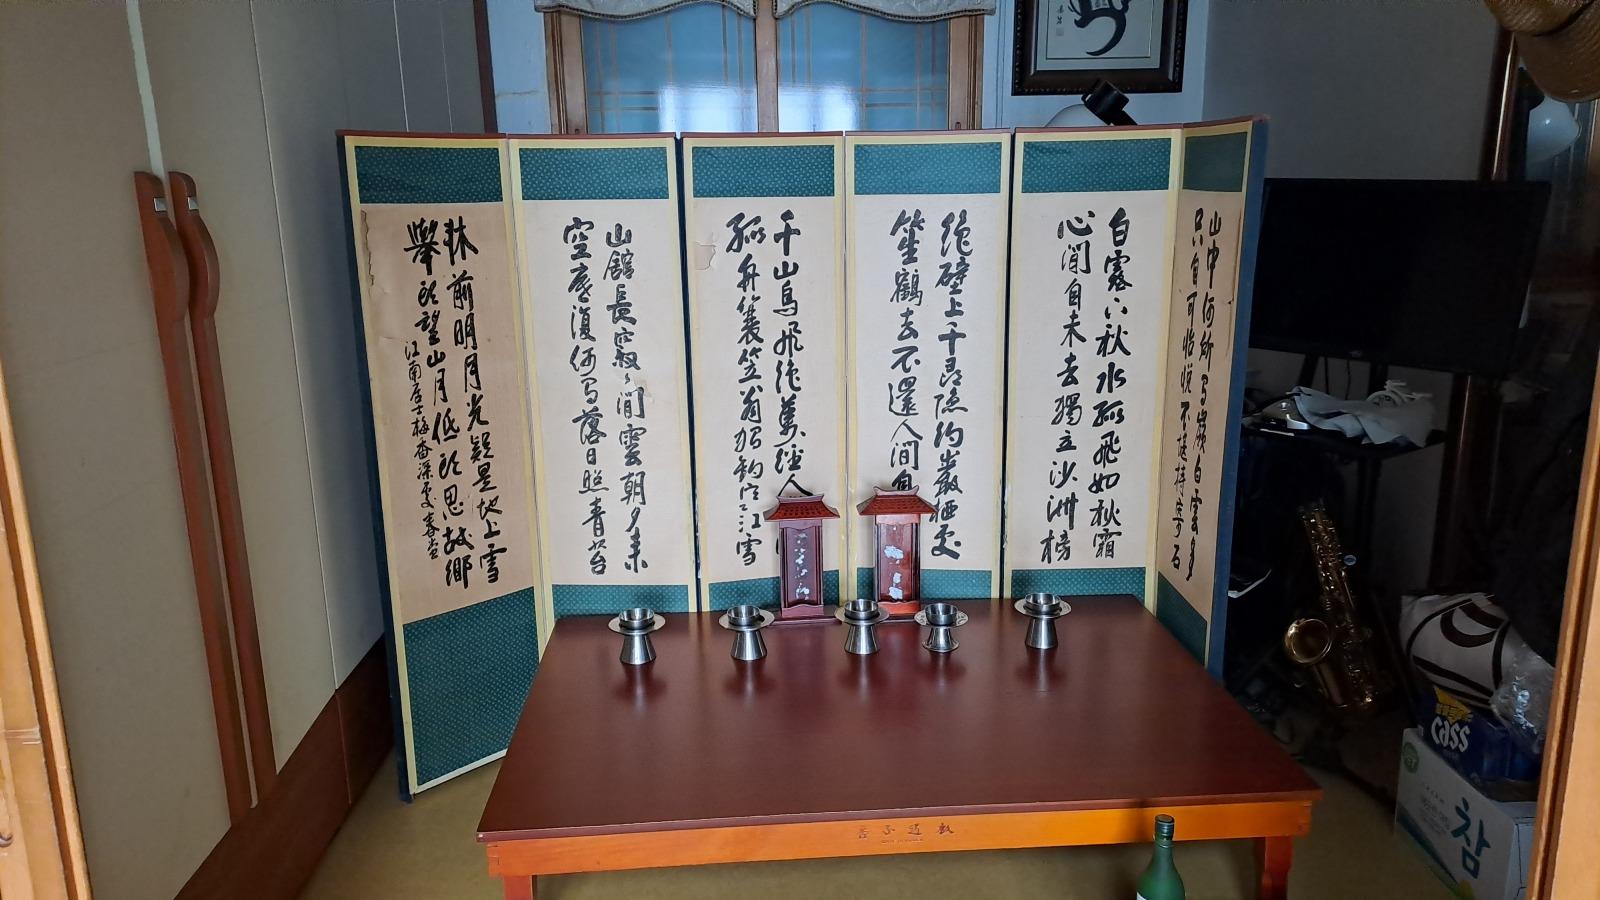 山中何所有嶺上白雲多
只自可怡悅不堪持寄君
白露下秋水孤飛如秋霜
心閒自未去獨立沙洲傍
絶壁上千尋隐約巖栖處
笙鶴去不還人間自
千山鳥飛绝萬逕人
孤舟簑笠翁獨釣寒江雪
山館長寂寂閒雲朝夕来
空庭復何有落日照青苔
牀前明月光疑是地上雪
擧頭望山月低頭思故郷
江南居士梅香深處春堂
Cass
참